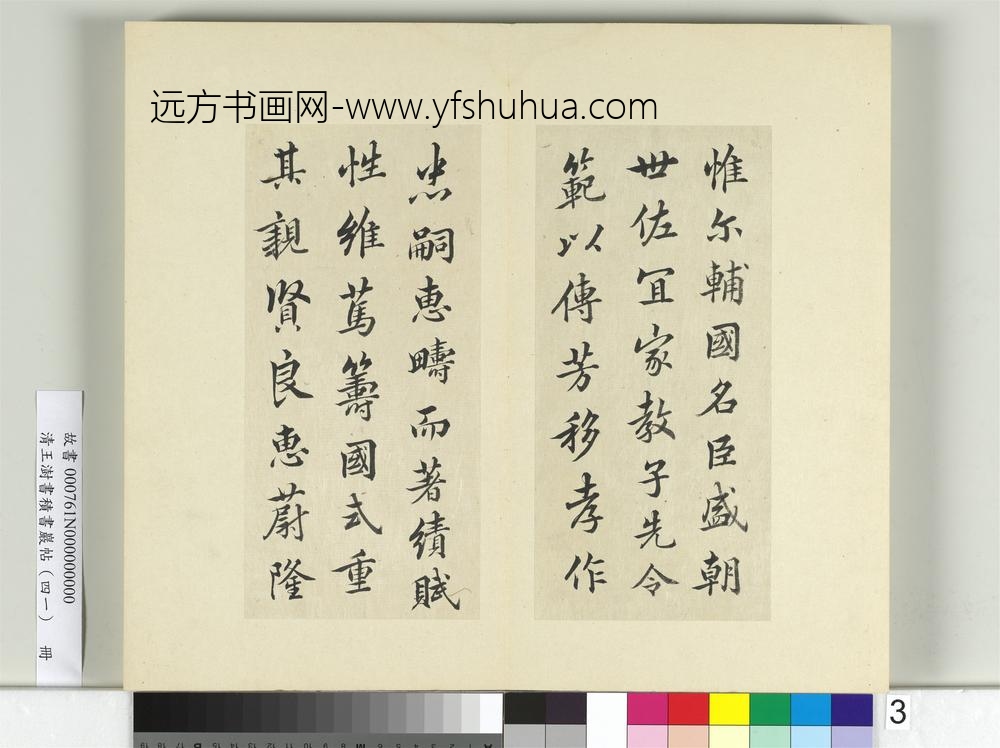 远方书画网-www.yfshuhua.com
惟尔輔國名臣盛朝
世佐冝家教子先令
範以傳芳移孝作
忠嗣惠疇而著績賦
性維蔦籌國式重
其親賢良惠蔚隆
故書 000761N000000000
清王澍書積書巖帖（四一） 冊
3